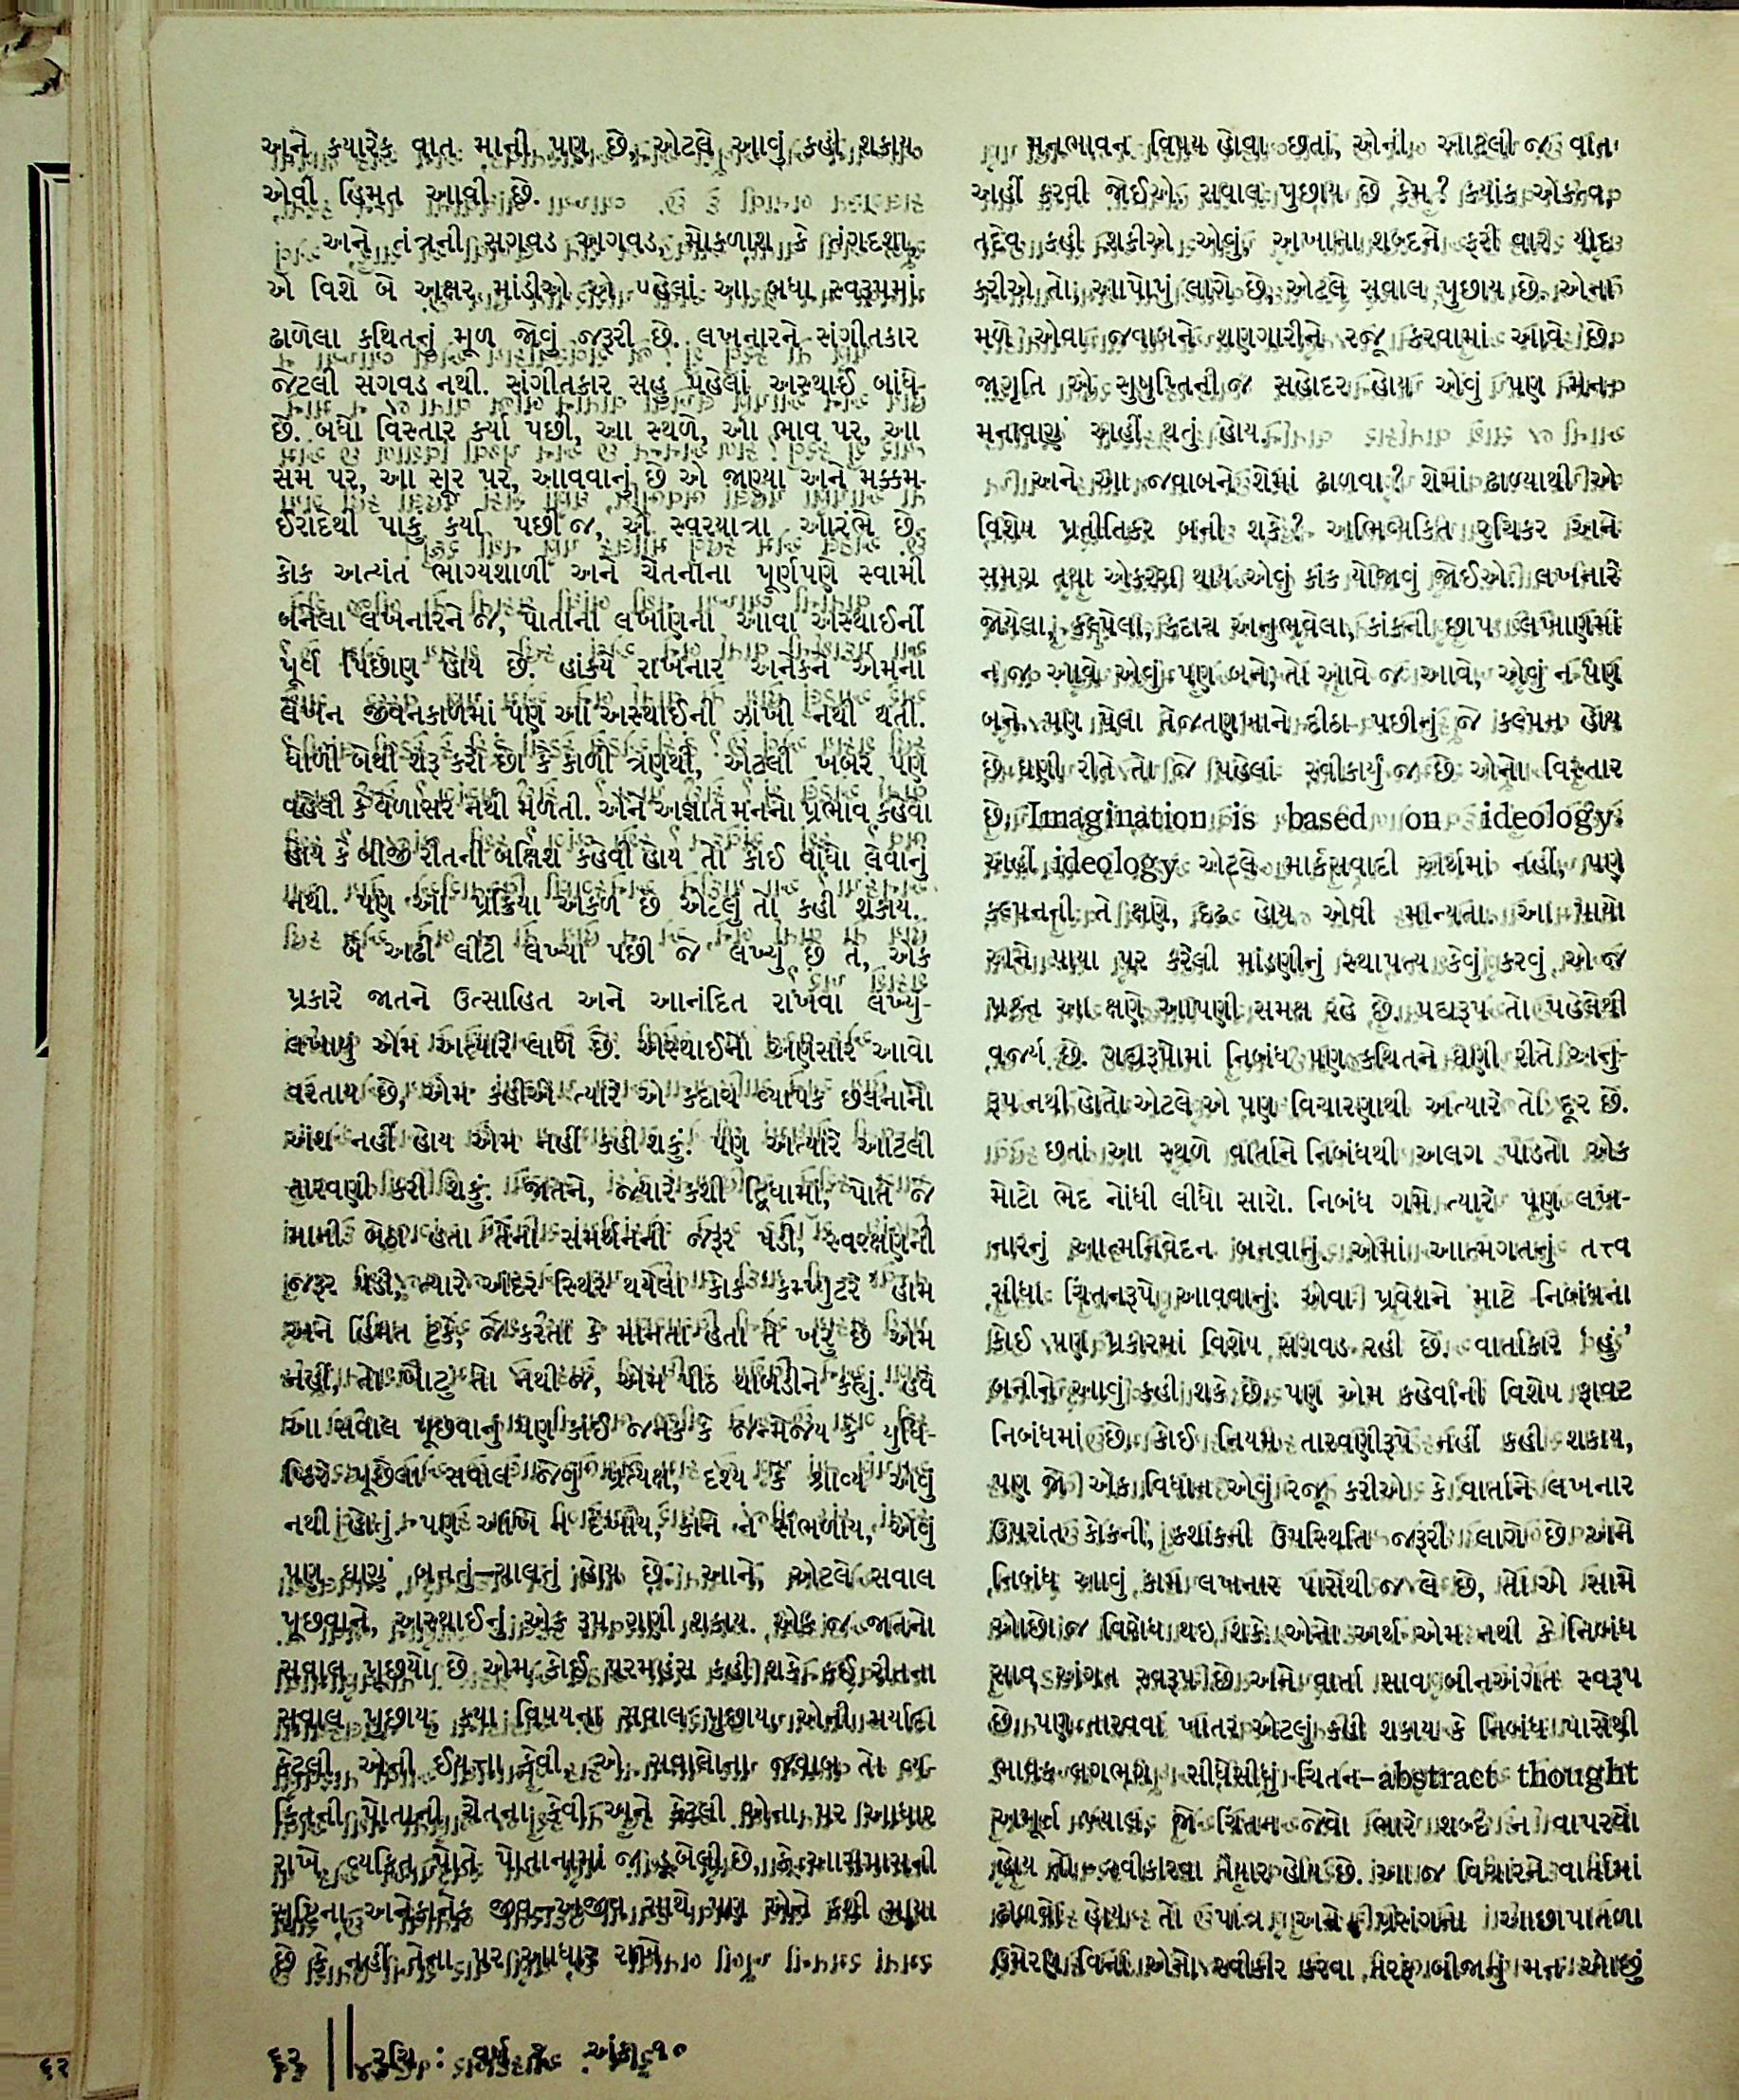 અને ક્યારેક વાત માની પણ છે, એટલે આવું કહી શકાય
એવી હિંમત આવી છે.
અને તંત્રની સગવડ અગવડ, મોકળાશ કે તંગદશા,
એ વિશે બે અક્ષર માંડીએ એ પહેલાં આ બધા સ્વરૂપમાં
ઢાળેલા કથિતનું મૂળ જોવું જરૂરી છે. લખનારને સંગીતકાર
જેટલી સગવડ નથી. સંગીતકાર સહુ પહેલાં અસ્થાઈ બાંધે
છે. બધો વિસ્તાર કર્યા પછી, આ સ્થળે, આ ભાવ પર, આ
સમ પર, આ સૂર પર, આવવાનું છે એ જાણ્યા અને મક્કમ
ઈરાદેથી પાકું કર્યા પછી જ, એ સ્વરયાત્રા આરંભે છે.
કોક અત્યંત ભાગ્યશાળી અને ચેતનાના પૂર્ણપણે સ્વામી
બનેલા લખનારને જ, પોતાના લખાણના આવા અસ્થાઈની
પૂર્વ પિછાણ હોય છે. હાંક્યે રાખનાર અનેકને એમના
લેખન જીવનકાળમાં પણ આ અસ્થાઈની ઝાંખી નથી થતી.
ધોળી બેથી શરૂ કરો છો કે કાળી ત્રણથી, એટલી ખબર પણ
વહેલી કે વેળાસર નથી મળતી. એને અજ્ઞાત મનનો પ્રભાવ કહેવો
હોય કે બીજી રીતની બક્ષિશ કહેવી હોય તો કોઈ વાંધો લેવાનું
નથી. પણ આ પ્રક્રિયા અકળ છે એટલું તો કહી શકાય.
બે અઢી લીટી લખ્યા પછી જે લખ્યું છે તે, એક
પ્રકારે જાતને ઉત્સાહિત અને આનંદિત રાખવા લખ્યું-
લખાયું એમ અત્યારે લાગે છે. અસ્થાઈનો અણસાર આવો
વરતાય છે, એમ કહીએ ત્યારે એ કદાચ વ્યાપક છલનાનો
અંશ નહીં હોય એમ નહીં કહી શકું. પણ અત્યારે આટલી
તારવણી કરી શકું. જાતને, જ્યારે કશી દ્વિધામાં, પોતે જ
માની બેઠા હતા તેની સમર્થનની જરૂર પડી, સ્વરક્ષણની
જરૂર પડી, ત્યારે અંદર સ્થિર થયેલા કોક કમ્પ્યુટરે હામ
અને હિંમત ટકે, જે કરતા કે માનતા હતા તે ખરું છે એમ
નહીં, તો ખોટું તો નથી જ, એમ પીઠ થાબડીને કહ્યું. હવે
આ સવાલ પૂછવાનું પણ કાંઈ જનક કે જન્મેજય કે યુધિ-
ષ્ઠિરે પૂછેલા સવાલ જેવું પ્રત્યક્ષ, દૃશ્ય કે શ્રાવ્ય એવું
નથી હોતું. પણ આંખે ન દેખાય, કાને ન સંભળાય, એવું
પણ ઘણું બનતું–ચાલતું હોય છે. આને, એટલે સવાલ
પૂછવાને, અસ્થાઈનું એક રૂપ ગણી શકાય. એક જ જાતનો
સવાલ પૂછ્યો છે એમ કોઈ પરમહંસ કહી શકે. કઈ રીતના
સવાલ પુછાય, ક્યા વિષયના સવાલ પુછાય, એની મર્યાદા
કેટલી, એની ઈયત્તા કેવી, એ સવાલોના જવાબ તો વ્ય-
ક્તિની પોતાની ચેતના કેવી અને કેટલી એના પર આધાર
રાખે. વ્યક્તિ પોતે પોતાનામાં જ ડૂબેલી છે, કે આસપાસની
સૃષ્ટિના અનેકાનેક જીવ-અજીવ સાથે પણ એને કશી માયા
છે કે નહીં તેના પર આધાર રાખે.
મનભાવન વિષય હોવા છતાં, એની આટલી જ વાત
અહીં કરવી જોઈએ. સવાલ પુછાય છે કેમ? ક્યાંક એકત્વ,
તદેવ કહી શકીએ એવું, અખાના શબ્દને ફરી વાર યાદ
કરીએ તો, આપોપું લાગે છે, એટલે સવાલ પુછાય છે. એના
મળે એવા જવાબને શણગારીને રજૂ કરવામાં આવે છે.
જાગૃતિ એ સુષુપ્તિની જ સહોદર હોય એવું પણ મન
મનાવાયું અહીં થતું હોય.
અને આ જવાબને શેમાં ઢાળવા? શેમાં ઢાળ્યાથી એ
વિશેષ પ્રતીતિકર બની શકે? અભિવ્યક્તિ રુચિકર અને
સમગ્ર તથા એકરસ થાય એવું કાંક યોજાવું જોઈએ. લખનારે
જોયેલા, કલ્પેલા, કદાચ અનુભવેલા, કાંકની છાપ લખાણમાં
ન જ આવે એવું પણ બને; તો આવે જ આવે, એવું ન પણ
બને. પણ પેલા તેજતણખાને દીઠા પછીનું જે કલ્પન હોય
છે ઘણી રીતે તો જે પહેલાં સ્વીકાર્યું જ છે એનો વિસ્તાર
છે, Imagination is based on ideology.
અહીં ideology એટલે માર્કસવાદી અર્થમાં નહીં, પણ
કલ્પનની તે ક્ષણે, દૃઢ હોય એવી માન્યતા. આ પાયો
અને પાયા પર કરેલી માંડણીનું સ્થાપત્ય કેવું કરવું એ જ
પ્રશ્ન આ ક્ષણે આપણી સમક્ષ રહે છે. પદ્યરૂપ તો પહેલેથી
વર્જ્ય છે. ગદ્યરૂપોમાં નિબંધ પણ કથિતને ઘણી રીતે અનુ-
રૂપ નથી હોતો એટલે એ પણ વિચારણાથી અત્યારે તો દૂર છે.
છતાં આ સ્થળે વાર્તાને નિબંધથી અલગ પાડતો એક
મોટો ભેદ નોંધી લીધો સારો. નિબંધ ગમે ત્યારે પણ લખ-
નારનું આત્મનિવેદન બનવાનું. એમાં આત્મગતનું તત્ત્વ
સીધા ચિંતનરૂપે આવવાનું. એવા પ્રવેશને માટે નિબંધના
કોઈ પણ પ્રકારમાં વિશેષ સગવડ રહી છે. વાર્તાકાર ‘હું’
બનીને આવું કહી શકે છે. પણ એમ કહેવાની વિશેષ ફાવટ
નિબંધમાં છે. કોઈ નિયમ તારવણીરૂપે નહીં કહી શકાય,
પણ જો એક વિધાન એવું રજૂ કરીએ કે વાર્તાને લખનાર
ઉપરાંત કોકની, કશાંકની ઉપસ્થિતિ જરૂરી લાગે છે અને
નિબંધ આવું કામ લખનાર પાસેથી જ લે છે, તો એ સામે
ઓછો જ વિરોધ થઇ શકે. એનો અર્થ એમ નથી કે નિબંધ
સાવ અંગત સ્વરૂપ છે અને વાર્તા સાવ બીનઅંગત સ્વરૂપ
છે. પણ તારવવા ખાતર એટલું કહી શકાય કે નિબંધ પાસેથી
ભાવક લગભગ સીધેસીધું ચિંતન–abstract thought
અમૂર્ત ખ્યાલ, જો ચિંતન જેવો ભારે શબ્દ ન વાપરવો
હોય તો–સ્વીકારવા તૈયાર હોય છે. આ જ વિચારને વાર્તામાં
ઢાળવો હોય તો પાત્ર અને પ્રસંગના આછાપાતળા
ઉમેરણ વિના એનો સ્વીકાર કરવા તરફ બીજાનું મન ઓછું
૬૨ || રુચિ : વર્ષ અંક ૧૦
૬૨